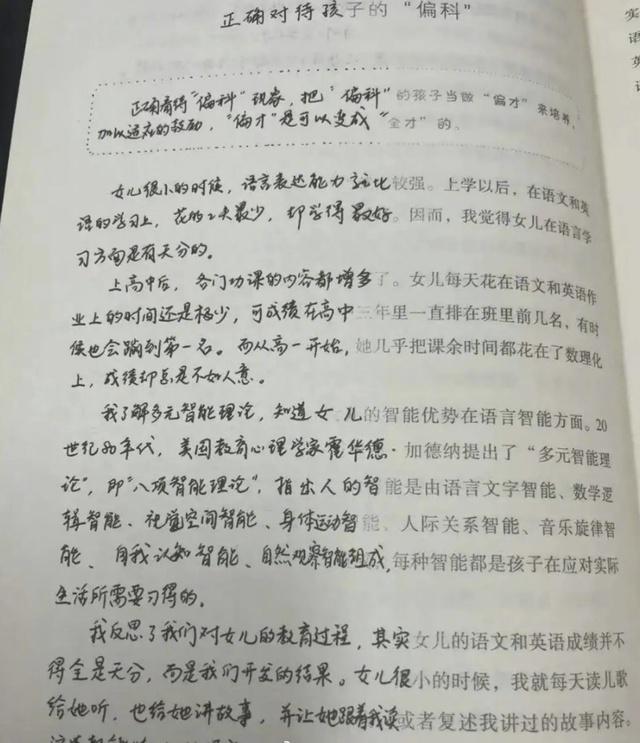 正确对待孩子的“偏科”
正确看待“偏科”现象，把“偏科”的孩子当做“偏才”来培养，
加以适应的鼓励，“偏才”是可以变成“全才”的。
女儿很小的时候，语言表达能力就比较强。上学以后，在语文和英
语的学习上，花的工夫最少，却学得最好。因而，我觉得女儿在语言学
习方面是有天分的。
上高中后，各门功课的内容都增多了。女儿每天花在语文和英语作
业上的时间还是极少，可成绩在高中三年里一直排在班里前几名，有时
候也会蹦到第一名。而从高一开始，她几乎把课余时间都花在了数理化
上，成绩却总是不如人意。
我了解多元智能理论，知道女儿的智能优势在语言智能方面。20
世纪80年代，美国教育心理学家霍华德·加德纳提出了“多元智能理
论”，即“八项智能理论”，指出人的智能是由语言文字智能、数学逻
辑智能、视觉空间智能、身体运动智能、人际关系智能、音乐旋律智
能、自我认知智能、自然观察智能组成，每种智能都是孩子在应对实际
生活所需要习得的。
我反思了我们对女儿的教育过程，其实女儿的语文和英语成绩并不
得全是天分，而是我们开发的结果。女儿很小的时候，我就每天读儿歌
给她听，也给她讲故事，并让她跟着我读或者复述我讲过的故事内容。
实
语
英